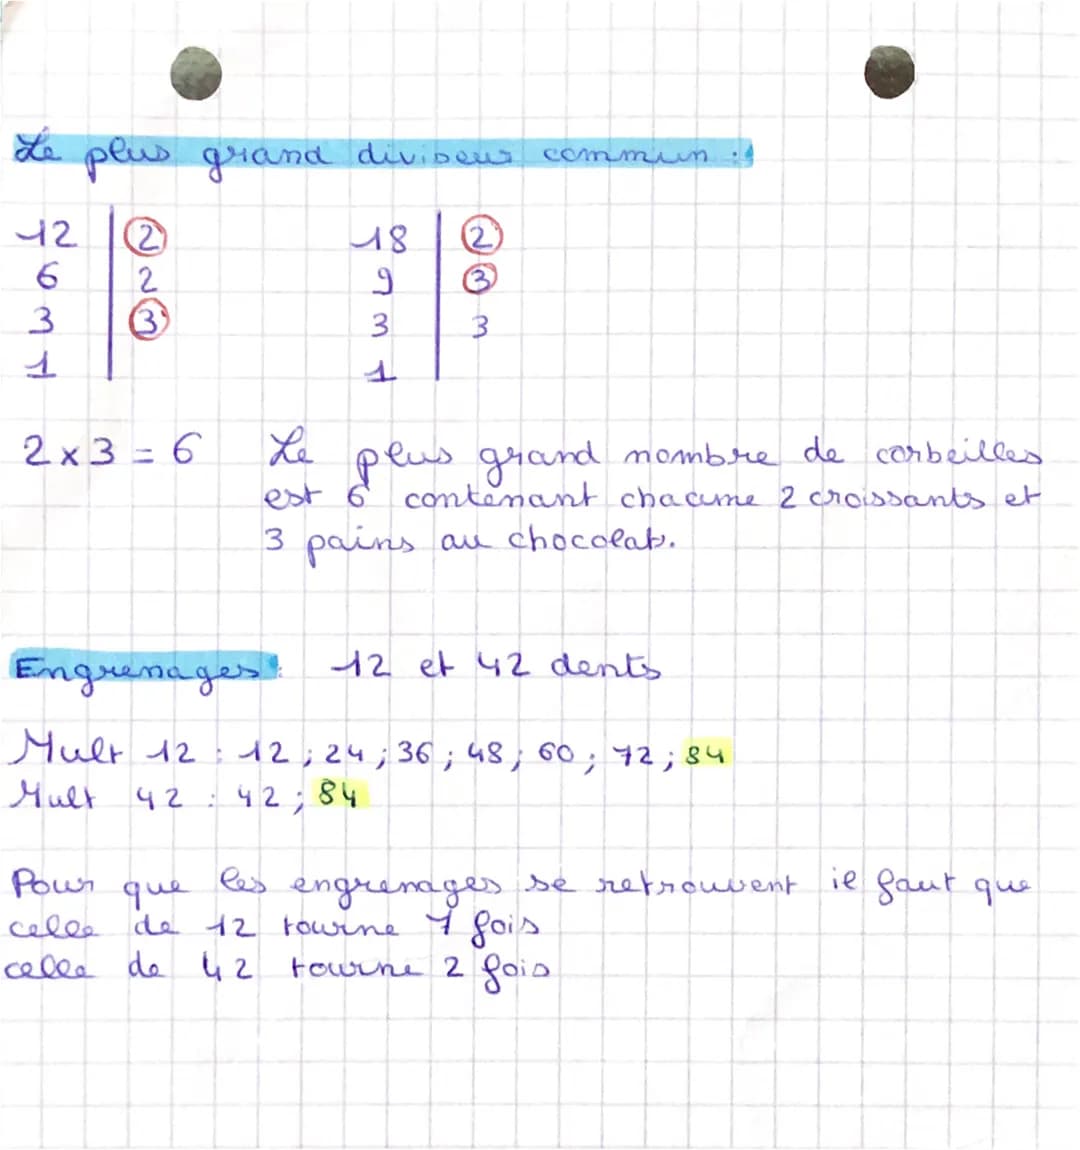 Le plus grand diviseur commun :
12 | 2 18 | 2
6 | 2 9 | 3
3 | 3 3 | 3
1 | 1 |
2 x 3 = 6 Le plus grand nombre de corbeilles
est 6 contenant chacune 2 croissants et
3 pains au chocolat.
Engrenages : 12 et 42 dents
Mult 12 : 12 ; 24 ; 36 ; 48 ; 60 ; 72 ; 84
Mult 42 : 42 ; 84
Pour que les engrenages se retrouvent il faut que
celle de 12 tourne 7 fois
celle de 42 tourne 2 fois